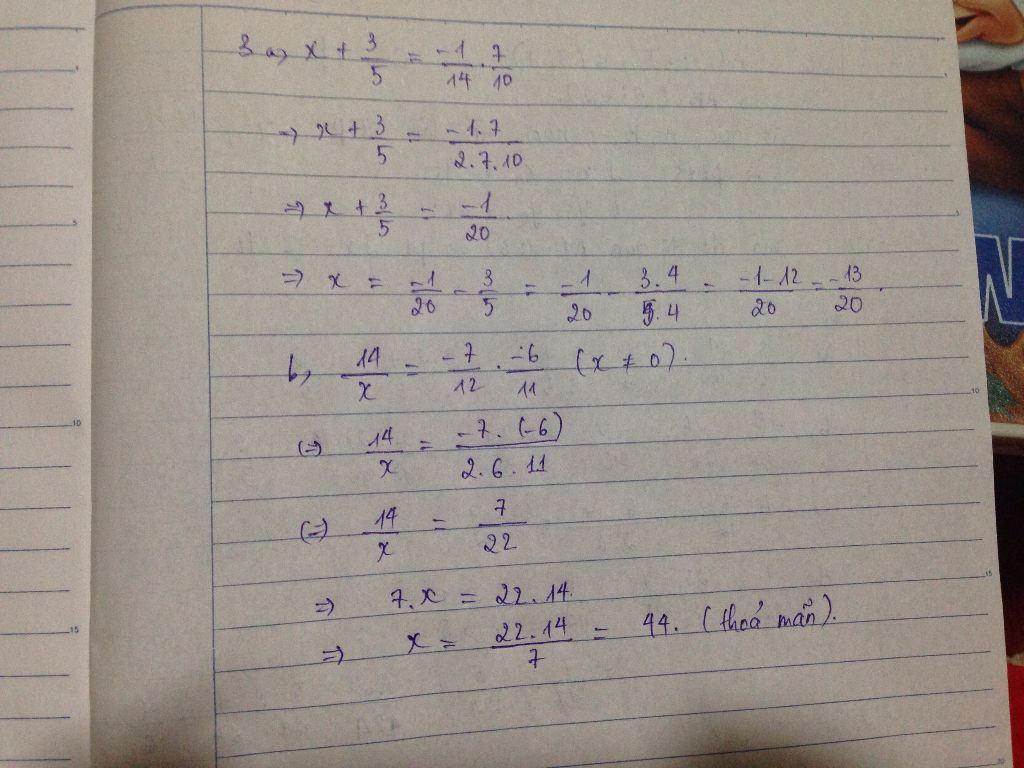 3 a, x + 3/5 = -1/14 . 7/10
=> x + 3/5 = -1.7/2.7.10
=> x + 3/5 = -1/20.
=> x = -1/20 - 3/5 = -1/20 - 3.4/5.4 = -1-12/20 = -13/20.
b, 14/x = -7/12 . -6/11 (x ≠ 0).
(=) 14/x = -7.(-6)/2.6.11
(=) 14/x = 7/22
=> 7.x = 22.14.
=> x = 22.14/7 = 44. (thoả mãn).
N